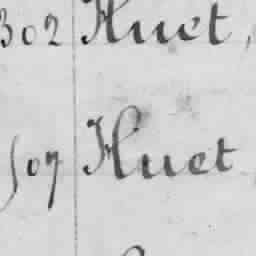 302 Huet,
507 Huet